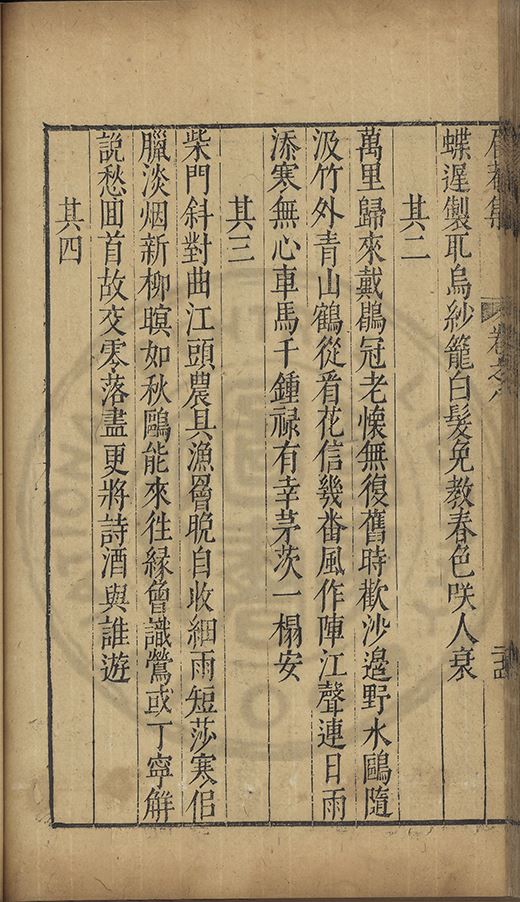 卷之八
蝶遲製耴烏紗籠白髮免教春色咲人衰
其二
萬里歸來戴鶡冠老懷無復舊時歡沙邊野水鷗隨
汲竹外青山鶴從看花信幾番風作陣江聲連日雨
添寒無心車馬千鍾禄有幸茅茨一榻安
其三
柴門斜對曲江頭農具漁罾晚自收細雨短莎寒侶
臘淡烟新柳暝如秋鷗能來徃緣曾識鶯或丁寧觧
説愁囬首故交零落盡更將詩酒與誰遊
其四